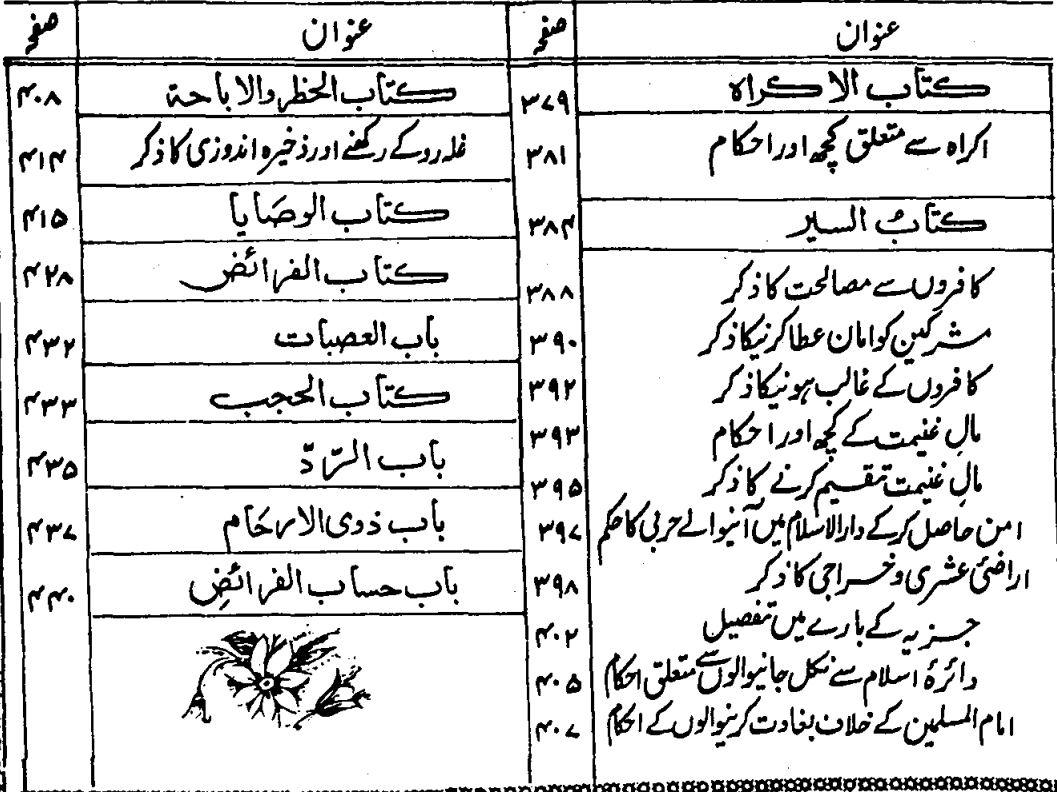 عنوان صفحہ
کتاب الاکراہ ۳۷۹
اکراہ سے متعلق کچھ اور احکام ۳۸۱
کتابُ السیر ۳۸۴
کافروں سے مصالحت کا ذکر ۳۸۸
مشرکین کو امان عطا کرنیکا ذکر ۳۹۰
کافروں کے غالب ہونیکا ذکر ۳۹۲
مالِ غنیمت کے کچھ اور احکام ۳۹۳
مالِ غنیمت تقسیم کرنے کا ذکر ۳۹۵
امن حاصل کرکے دارالاسلام میں آنیوالے حربی کا حکم ۳۹۷
اراضئ عشری و خراجی کا ذکر ۳۹۸
جزیہ کے بارے میں تفصیل ۴۰۲
دائرۂ اسلام سے نکل جانیوالوں سے متعلق احکام ۴۰۵
امام المسلمین کے خلاف بغاوت کرنیوالوں کے احکام ۴۰۷
عنوان صفحہ
کتاب الحظر والاباحۃ ۴۰۸
غلہ روکے رکھنے اور ذخیرہ اندوزی کا ذکر ۴۱۴
کتاب الوصَایا ۴۱۵
کتاب الفرائض ۴۲۸
باب العصبات ۴۳۲
کتاب الحجب ۴۳۳
باب الرّدّ ۴۳۵
باب ذوی الارحَام ۴۳۷
باب حساب الفرائضِ ۴۴۰